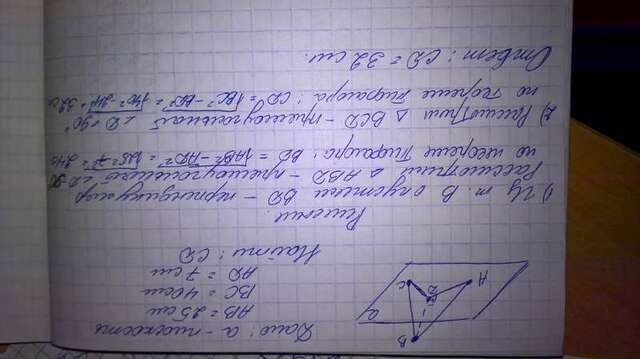 Дано: α - плоскость
AB = 25 см
BC = 40 см
AD = 7 см
Найти: CD
B
α
A
D
C
Решение
1) Из т. B опустим BD - перпендикуляр
Рассмотрим △ ABD - прямоугольный ∠D=90°
по теореме Пифагора: BD = √AB² - AD² = √25² - 7² = 24см
2) Рассмотрим △ BCD - прямоугольный ∠D=90°
по теореме Пифагора: CD = √BC² - BD² = √40² - 24² = 32 см
Ответ: CD = 32 см.